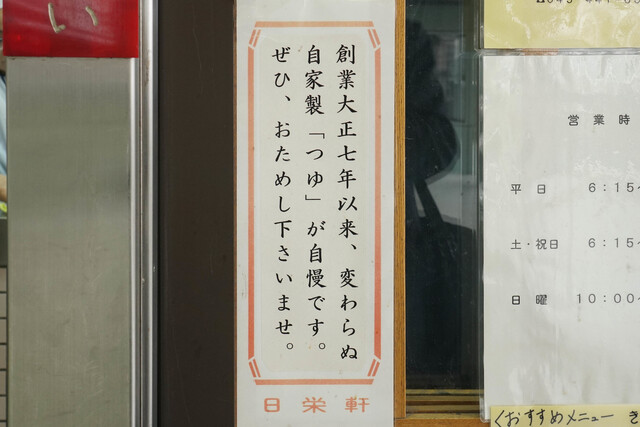 い
創業大正七年以来、変わらぬ
自家製「つゆ」が自慢です。
ぜひ、おためし下さいませ。
日栄軒
営業時
平日 6:15~
土・祝日 6:15~
日曜 10:00~
くおすすめメニュー